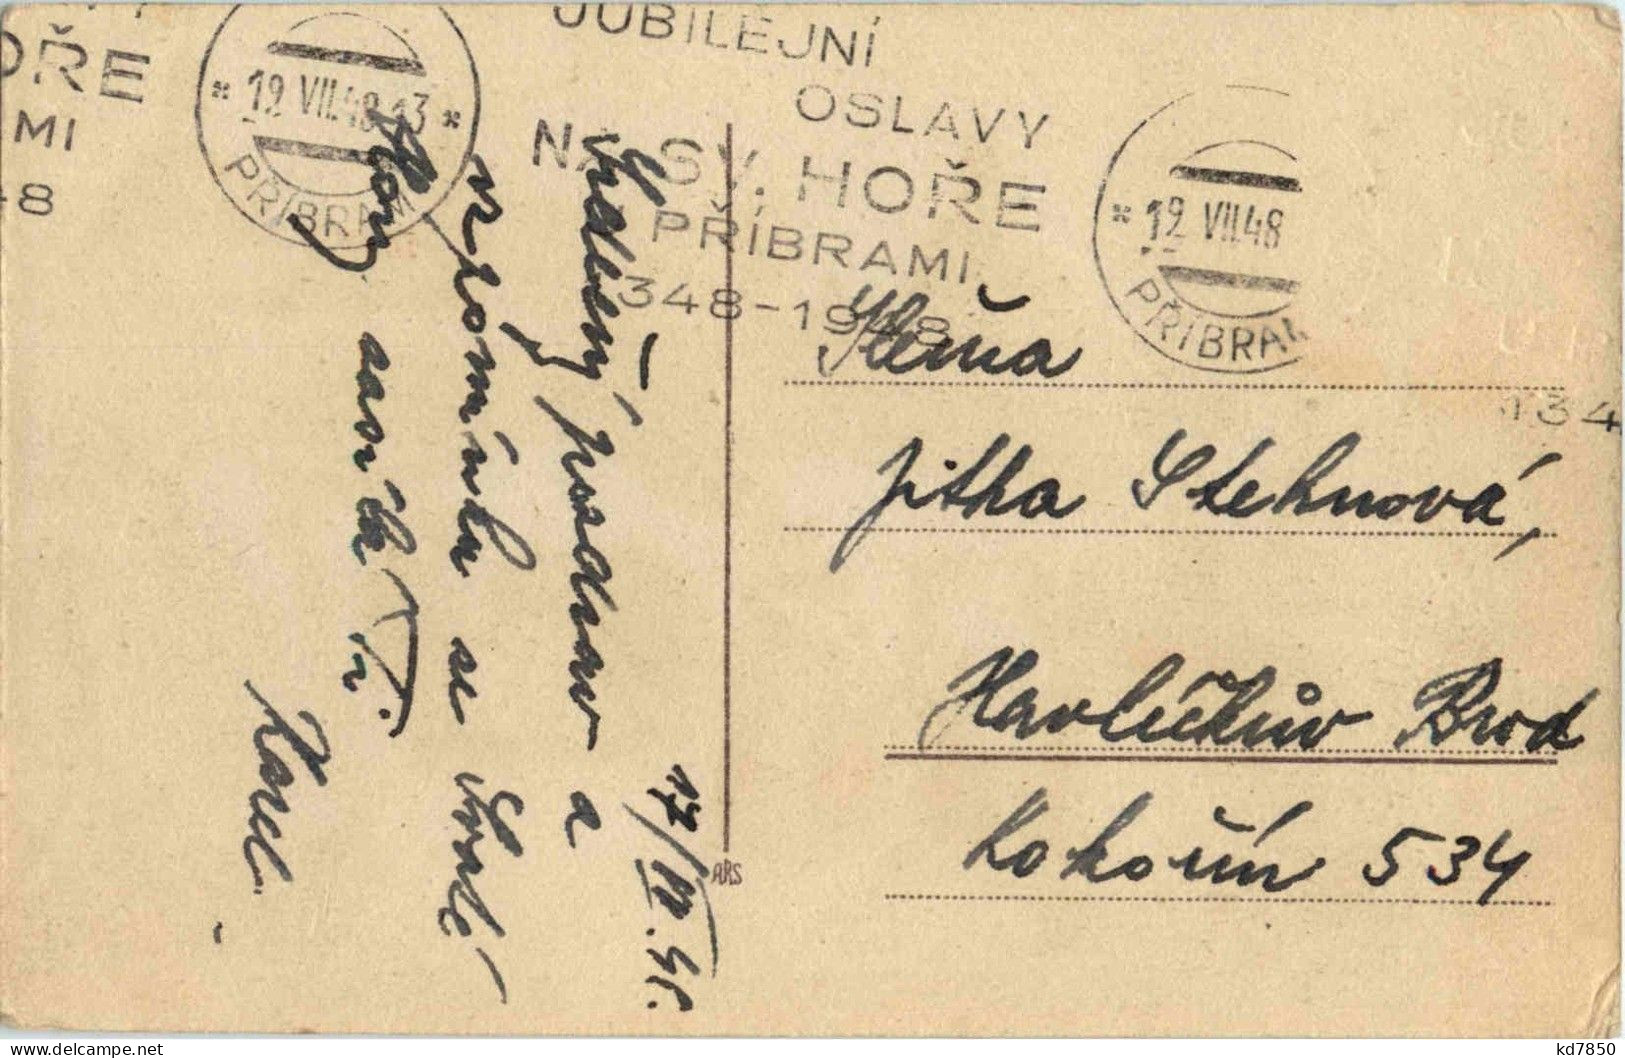 JUBILEJNÍ
OSLAVY
NA SV. HOŘE
PŘÍBRAMI
1348-1948
19 VII.48 13
PŘÍBRAM
OŘE
MI
48
19 VII.48
PŘÍBRAM
134
17/VII.48.
Srdečný pozdrav a
vzpomínku se Svaté
Hory zasílá Ti
Karel.
Slečna
Jitka Stehnová,
Havlíčkův Brod
Kokořín 534
ARS
kd7850